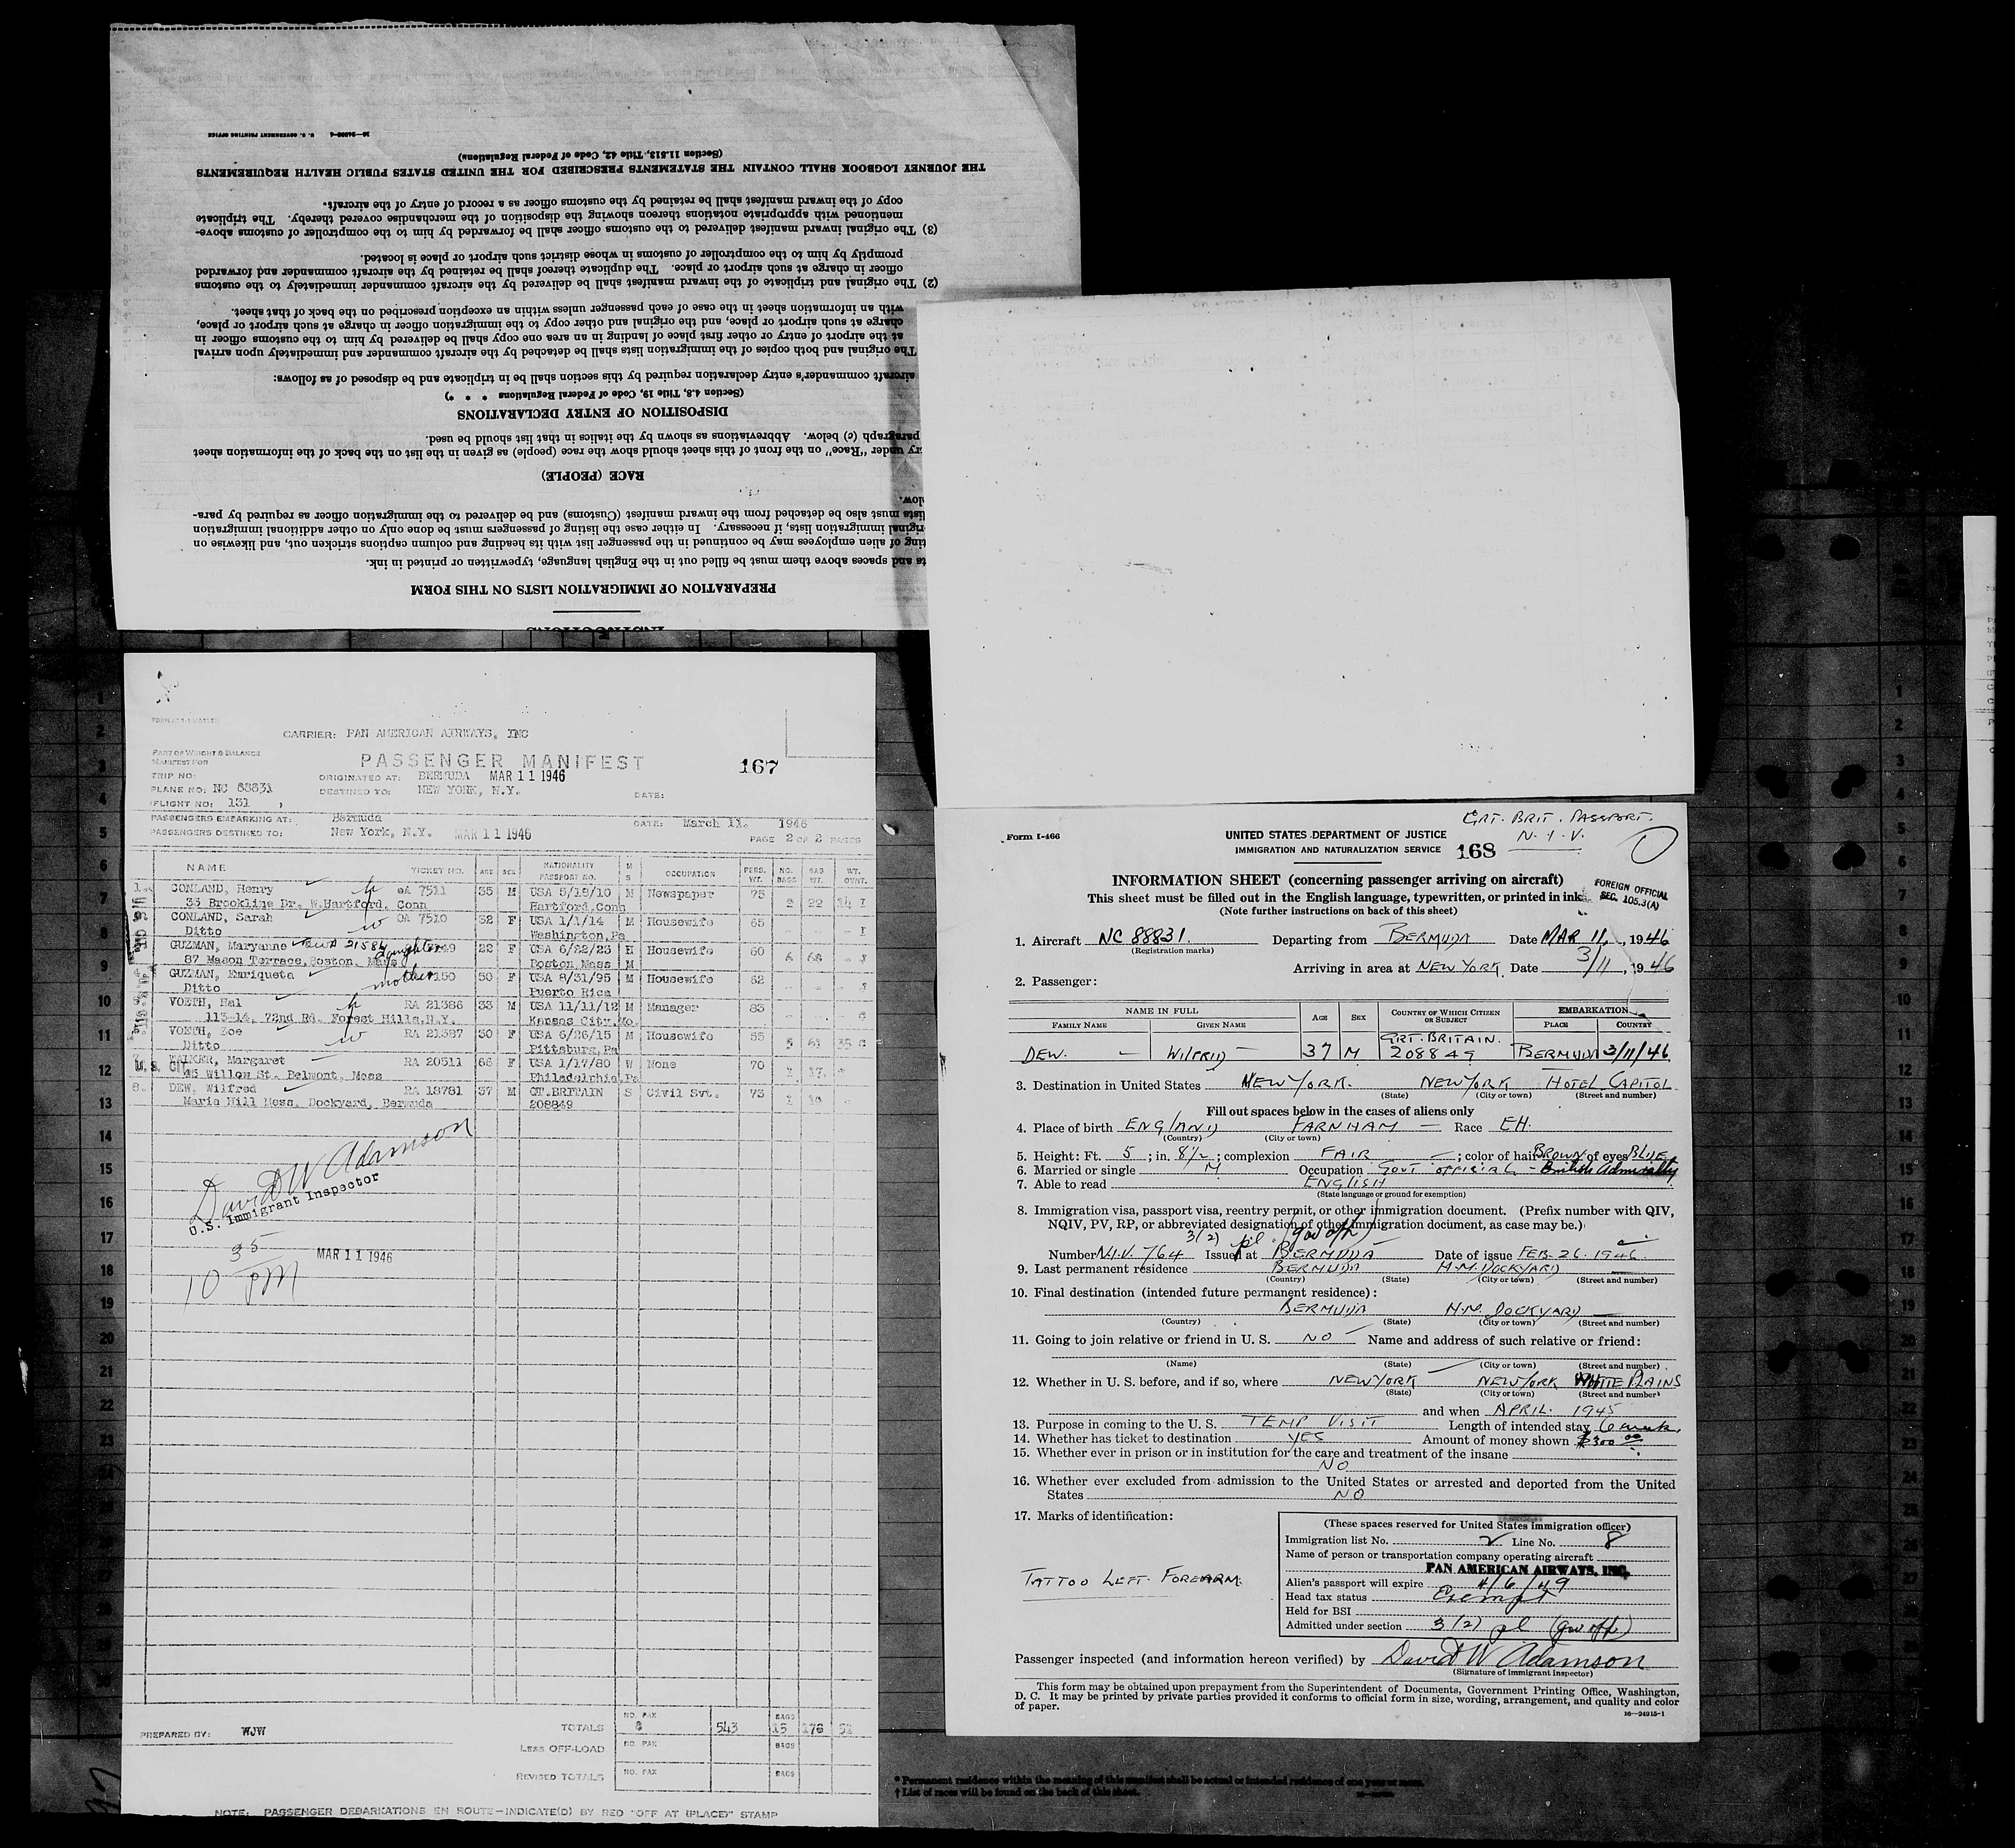 INSTRUCTIONS
PREPARATION OF IMMIGRATION LISTS ON THIS FORM
and spaces above them must be filled out in the English language, typewritten or printed in ink.
of alien employees may be continued in the passenger list with its heading and column captions stricken out, and likewise on
original immigration lists, if necessary. In either case the listing of passengers must be done only on other additional immigration
lists must also be detached from the inward manifest (Customs) and be delivered to the immigration officer as required by para-
RACE (PEOPLE)
under "Race" on the front of this sheet should show the race (people) as given in the list on the back of the information sheet
paragraph (c) below. Abbreviations as shown by the italics in that list should be used.
DISPOSITION OF ENTRY DECLARATIONS
(Section 4.8, Title 19, Code of Federal Regulations * * *)
aircraft commander's entry declaration required by this section shall be in triplicate and be disposed of as follows:
The original and both copies of the immigration lists shall be detached by the aircraft commander and immediately upon arrival
at the airport of entry or other first place of landing in an area one copy shall be delivered by him to the customs officer in
charge at such airport or place, and the original and other copy to the immigration officer in charge at such airport or place,
with an information sheet in the case of each passenger unless within an exception prescribed on the back of that sheet.
(2) The original and triplicate of the inward manifest shall be delivered by the aircraft commander immediately to the customs
officer in charge at such airport or place. The duplicate thereof shall be retained by the aircraft commander and forwarded
promptly by him to the comptroller of customs in whose district such airport or place is located.
(3) The original inward manifest delivered to the customs officer shall be forwarded by him to the comptroller of customs above-
mentioned with appropriate notations thereon showing the disposition of the merchandise covered thereby. The triplicate
copy of the inward manifest shall be retained by the customs officer as a record of entry of the aircraft.
THE JOURNEY LOGBOOK SHALL CONTAIN THE STATEMENTS PRESCRIBED FOR THE UNITED STATES PUBLIC HEALTH REQUIREMENTS
(Section 11.513, Title 42, Code of Federal Regulations)
U. S. GOVERNMENT PRINTING OFFICE
CARRIER: PAN AMERICAN AIRWAYS, INC
PART OF WEIGHT & BALANCE
MANIFEST FOR
PASSENGER MANIFEST 167
TRIP NO:
ORIGINATED AT: BERMUDA MAR 11 1946
PLANE NO: NC 88831 DESTINED TO: NEW YORK, N.Y. DATE:
(FLIGHT NO: 131 )
PASSENGERS EMBARKING AT: Bermuda DATE: March 11, 1946
PASSENGERS DESTINED TO: New York, N.Y. MAR 11 1946 PAGE 2 OF 2 PAGES
NAME TICKET NO. AGE SEX NATIONALITY PASSPORT NO. M S OCCUPATION PERS. WT. NO. BAGS BAG WT. WT. OVHT.
1. CONLAND, Henry OA 7511 35 M USA 5/19/10 M Newspaper 75
33 Brookline Dr. W.Hartford, Conn Hartford,Conn 2 22 14
CONLAND, Sarah OA 7510 32 F USA 1/1/14 M Housewife 65
Ditto Washington,Pa
GUZMAN, Maryanne 21584 daughter 22 F USA 6/22/23 Housewife 60
87 Mason Terrace, Boston, Mass Boston Mass M
GUZMAN, Enriqueta mother 50 F USA 8/31/95 M Housewife 62
Ditto Puerto Rica
VOETH, Hal RA 21386 33 M USA 11/11/12 M Manager 83
113-14, 72nd Rd. Forest Hills,N.Y. Kansas City,Mo.
VOETH, Zoe RA 21387 30 F USA 6/26/15 M Housewife 55
Ditto Pittsburg,Pa
WALKER, Margaret RA 20511 66 F USA 1/17/80 W None 70
45 Willow St. Belmont, Mass Philadelphia,Pa
8. DEW, Wilfred RA 18781 37 M GT.BRITAIN S Civil Svt. 73
Maria Hill Mess, Dockyard, Bermuda 208849
David W Adamson
U.S. Immigrant Inspector
10 35 PM
MAR 11 1946
PREPARED BY: WJW TOTALS NO. PAX 8 543 BAGS 15 176 51
LESS OFF-LOAD NO. PAX BAGS
REVISED TOTALS NO. PAX BAGS
NOTE: PASSENGER DEBARKATIONS EN ROUTE—INDICATE(D) BY RED "OFF AT (PLACE)" STAMP
GRT. BRIT. PASSPORT.
N.I.V.
Form I-466
UNITED STATES DEPARTMENT OF JUSTICE
IMMIGRATION AND NATURALIZATION SERVICE 168
INFORMATION SHEET (concerning passenger arriving on aircraft)
FOREIGN OFFICIAL
SEC. 105.3(A)
This sheet must be filled out in the English language, typewritten, or printed in ink
(Note further instructions on back of this sheet)
1. Aircraft NC 88831. Departing from BERMUDA Date MAR 11, 1946
(Registration marks)
Arriving in area at NEW YORK, Date 3/11, 1946
2. Passenger:
NAME IN FULL AGE SEX COUNTRY OF WHICH CITIZEN OR SUBJECT EMBARKATION
FAMILY NAME GIVEN NAME PLACE COUNTRY
DEW. WILFRID 37 M GRT. BRITAIN. 208849 BERMUDA 3/11/46
3. Destination in United States NEW YORK. NEW YORK HOTEL CAPITOL
(State) (City or town) (Street and number)
Fill out spaces below in the cases of aliens only
4. Place of birth ENGLAND FARNHAM Race EH.
(Country) (City or town)
5. Height: Ft. 5; in. 8½; complexion FAIR; color of hair BROWN of eyes BLUE
6. Married or single M Occupation GOVT OFFICIAL - British Admiralty
7. Able to read ENGLISH
(State language or ground for exemption)
8. Immigration visa, passport visa, reentry permit, or other immigration document. (Prefix number with QIV,
NQIV, PV, RP, or abbreviated designation of other immigration document, as case may be.)
3(2) pl (gov off)
Number N.I.V. 764 Issued at BERMUDA Date of issue FEB. 26. 1946.
9. Last permanent residence BERMUDA H.M. DOCKYARD
(Country) (State) (City or town) (Street and number)
10. Final destination (intended future permanent residence):
BERMUDA H.M. DOCKYARD
(Country) (State) (City or town) (Street and number)
11. Going to join relative or friend in U. S. NO Name and address of such relative or friend:
(Name) (State) (City or town) (Street and number)
12. Whether in U. S. before, and if so, where NEW YORK NEW YORK WHITE PLAINS
(State) (City or town) (Street and number)
and when APRIL. 1945
13. Purpose in coming to the U. S. TEMP VISIT Length of intended stay 6 weeks
14. Whether has ticket to destination YES Amount of money shown $300.00
15. Whether ever in prison or in institution for the care and treatment of the insane
NO
16. Whether ever excluded from admission to the United States or arrested and deported from the United
States NO
17. Marks of identification:
TATTOO LEFT FOREARM.
(These spaces reserved for United States immigration officer)
Immigration list No. 2 Line No. 8
Name of person or transportation company operating aircraft
PAN AMERICAN AIRWAYS, INC.
Alien's passport will expire 4/6/49
Head tax status Exempt
Held for BSI
Admitted under section 3(2) pl (gov off)
Passenger inspected (and information hereon verified) by David W Adamson
(Signature of immigrant inspector)
This form may be obtained upon prepayment from the Superintendent of Documents, Government Printing Office, Washington,
D. C. It may be printed by private parties provided it conforms to official form in size, wording, arrangement, and quality and color
of paper.
16—24915-1
* Permanent residence within the meaning of this manifest shall be actual or intended residence of one year or more.
† List of races will be found on the back of this sheet.